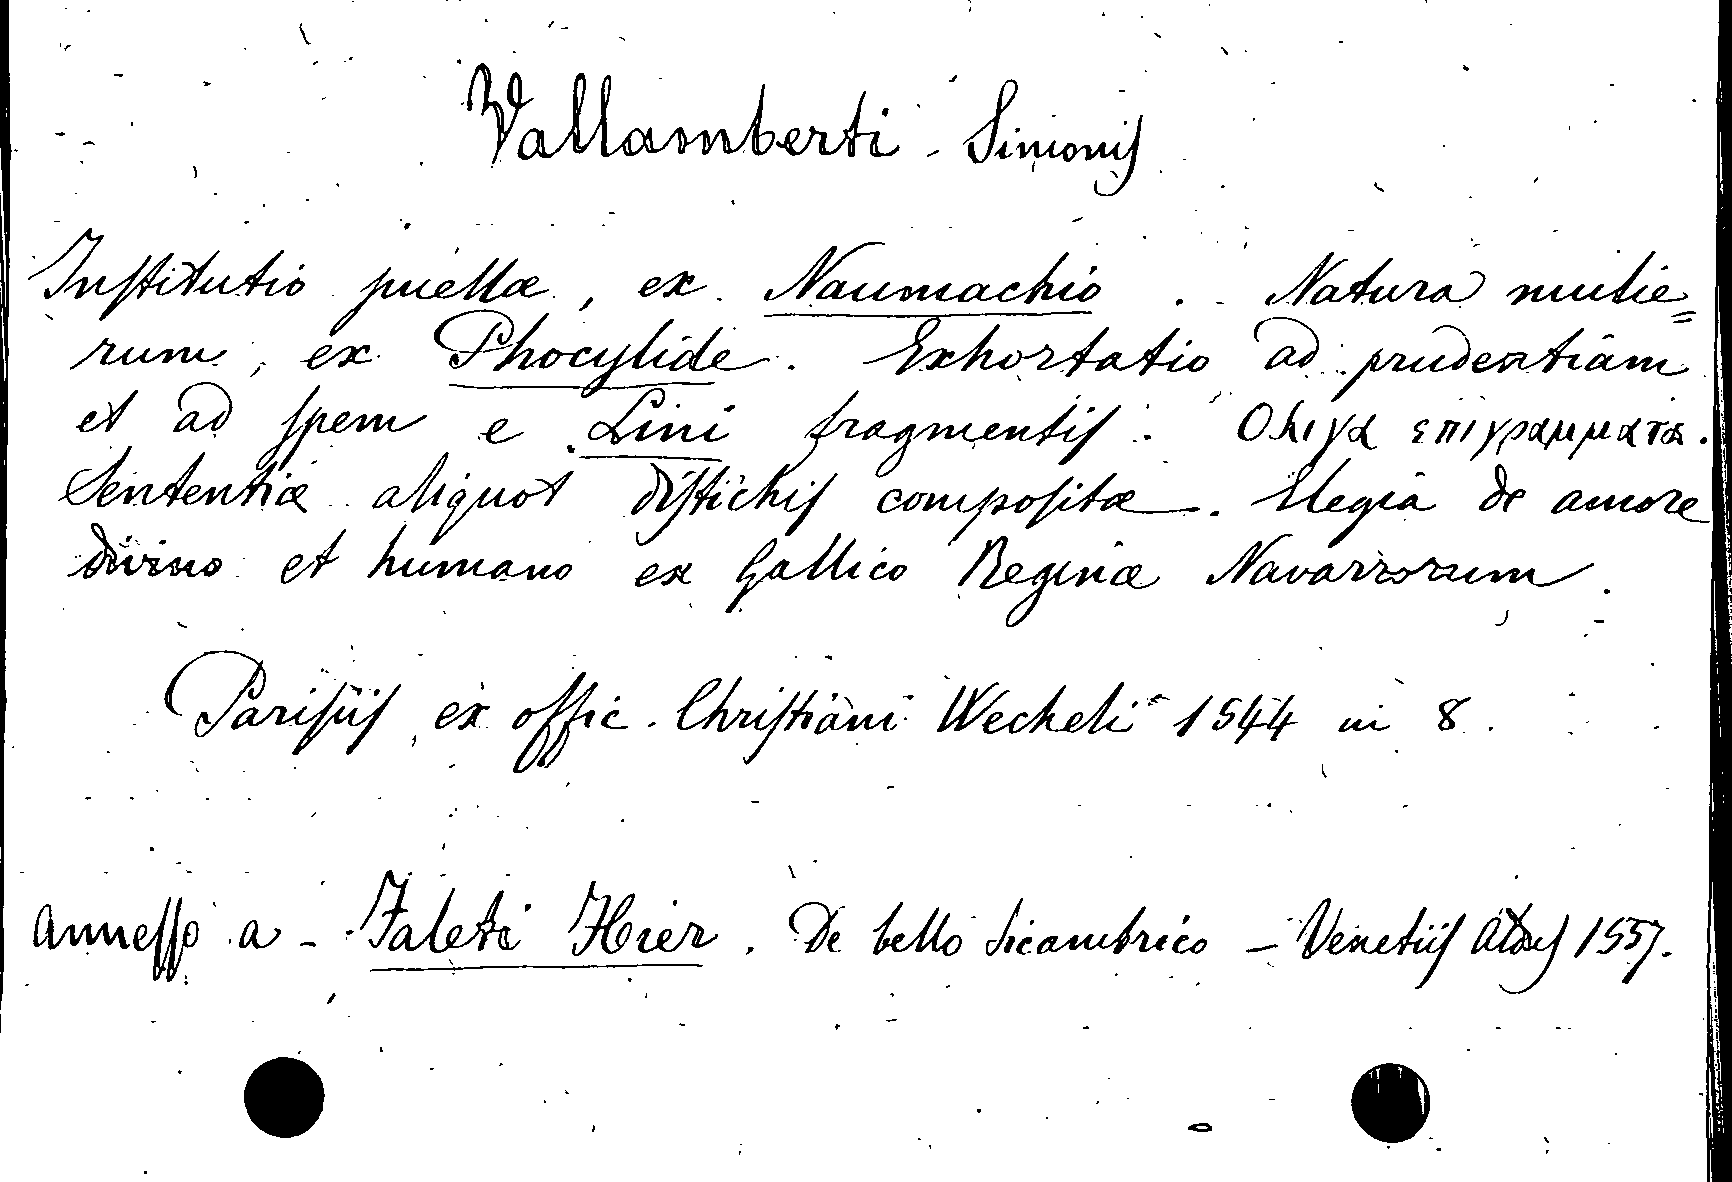 Vallamberti - Simonis
Institutio puellæ, ex Naumachio. Natura mulie=
rum, ex Phocylide. Exhortatio ad prudentiam
et ad spem e Lini fragmentis. Ολιγα επιγραμματα.
Sententiæ aliquot distichis compositæ. Elegia de amore
divino et humano ex Gallico Reginæ Navarrorum.
Parisiis ex offic. Christiani Wecheli 1544 in 8.
annesso a - Faleti Hier. De bello Sicambrico - Venetiis Aldus 1557.